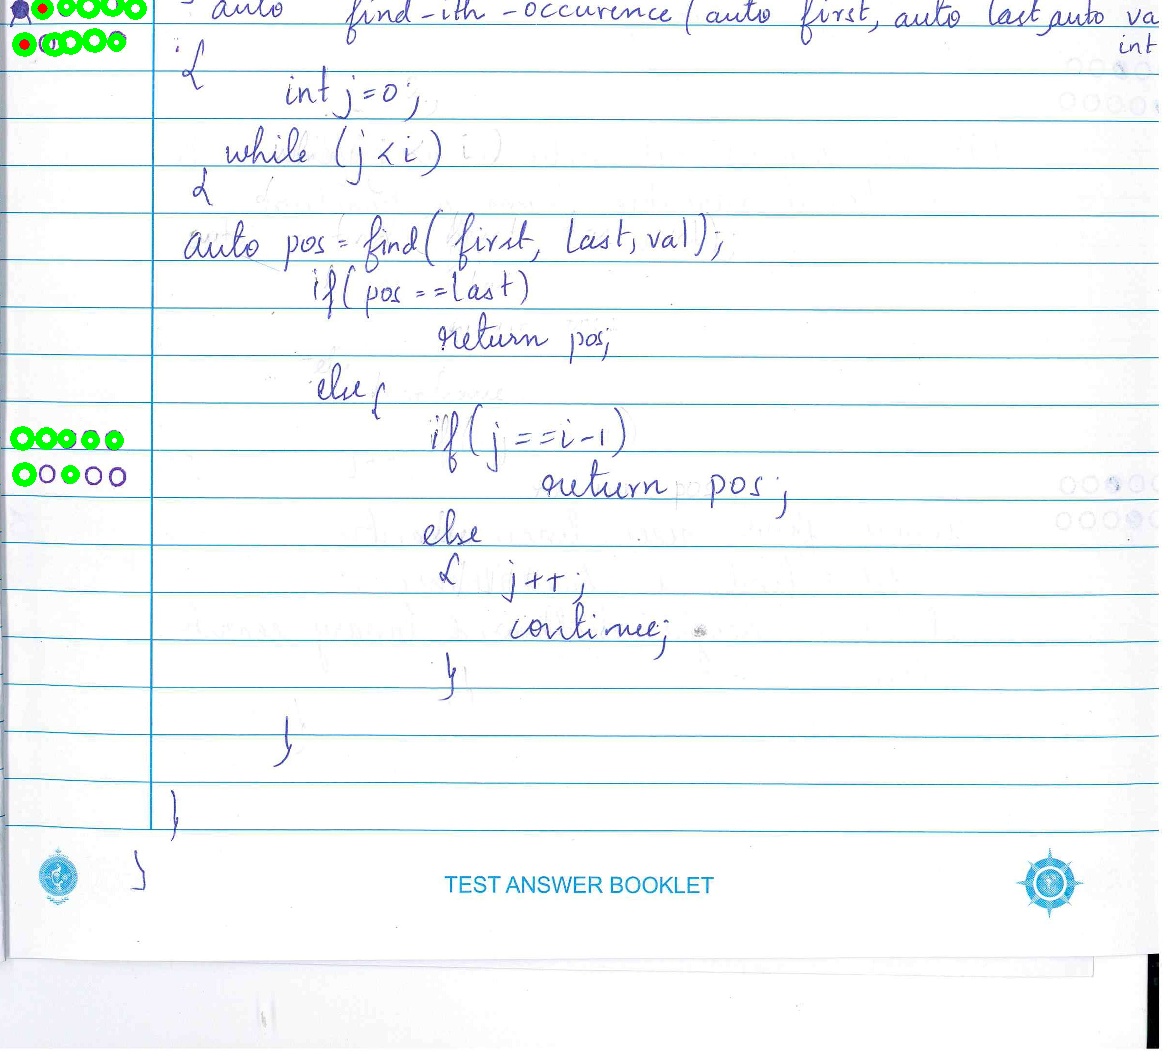 auto find-ith-occurence(auto first, auto last, auto va
int
{
int j=0;
while (j<i)
{
auto pos = find(first, last, val);
if(pos==last)
return pos;
else{
if(j==i-1)
return pos;
else
{ j++;
continue;
}
}
}
}
TEST ANSWER BOOKLET